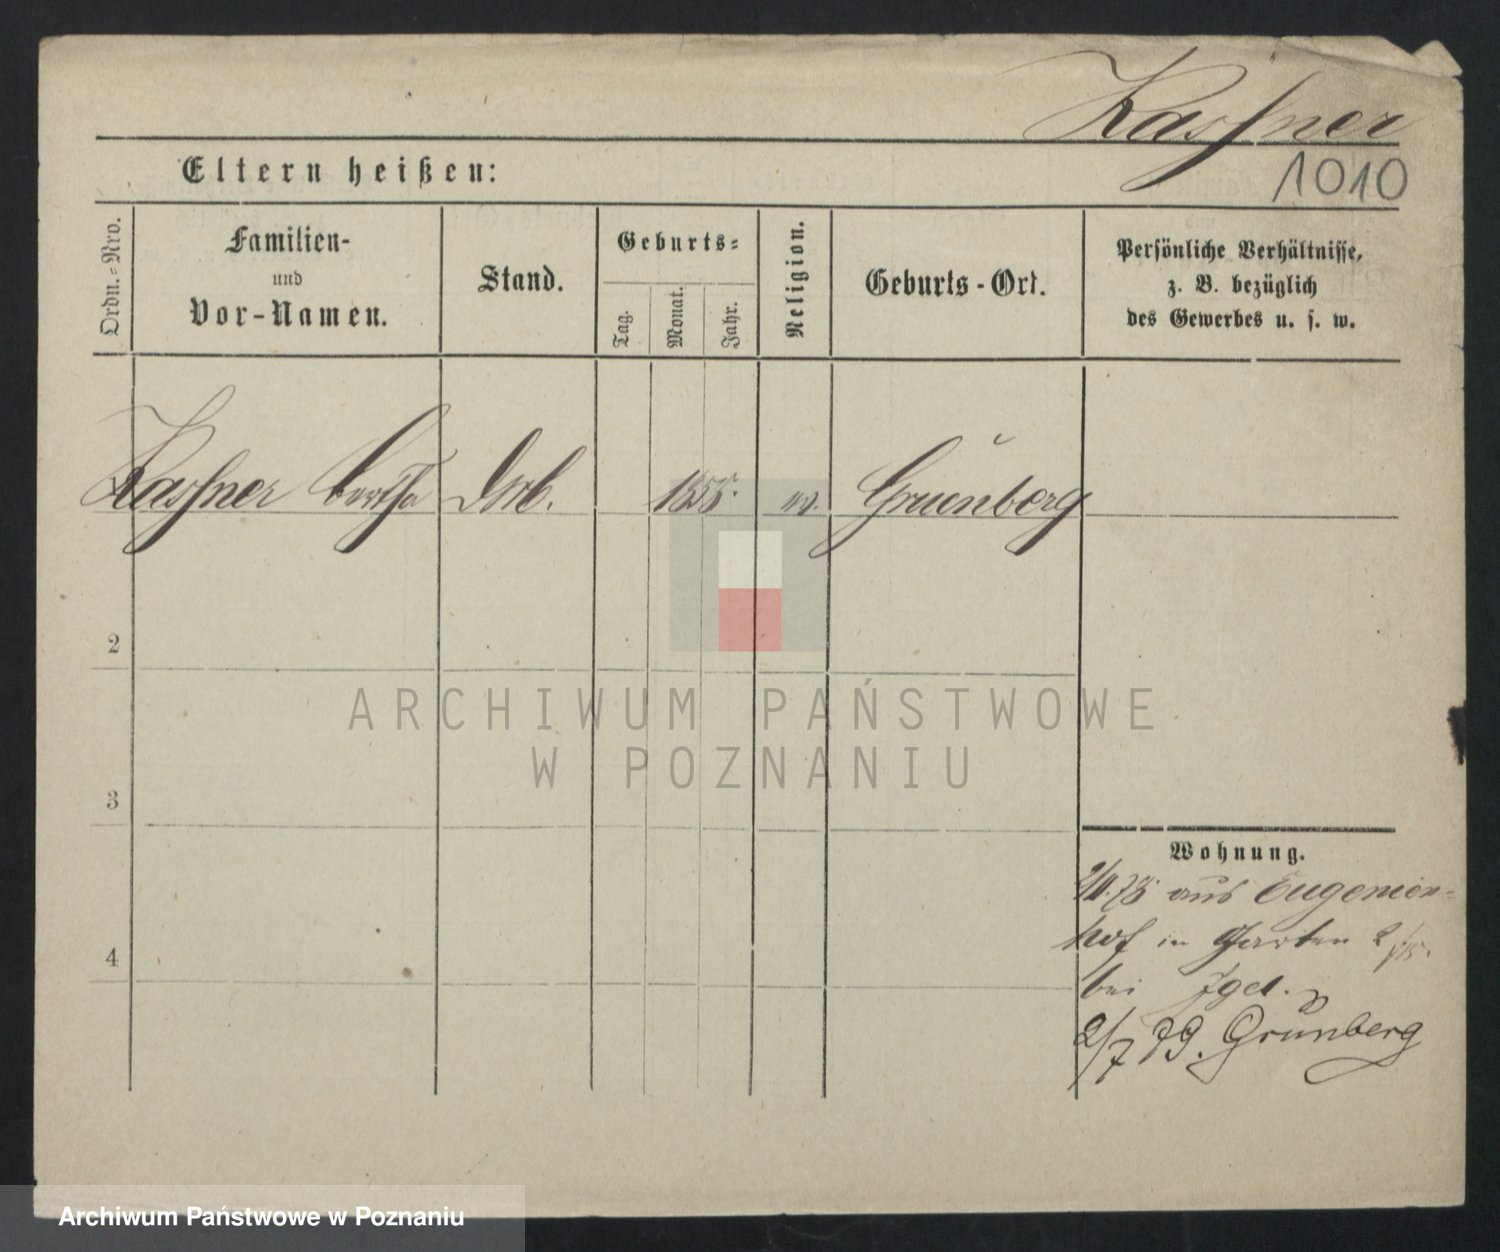 Kassner
1010
Eltern heißen:
Ordn.=Nro.
Familien-
und
Vor-Namen.
Stand.
Geburts=
Tag.
Monat.
Jahr.
Religion.
Geburts-Ort.
Persönliche Verhältnisse,
z. B. bezüglich
des Gewerbes u. s. w.
Kassner Bertha
1855.
Gruenberg
2
3
4
Wohnung.
aus Eugenien=
hof in Garten
bei Igel.
2/7 79. Grünberg
ARCHIWUM PAŃSTWOWE
W POZNANIU
Archiwum Państwowe w Poznaniu